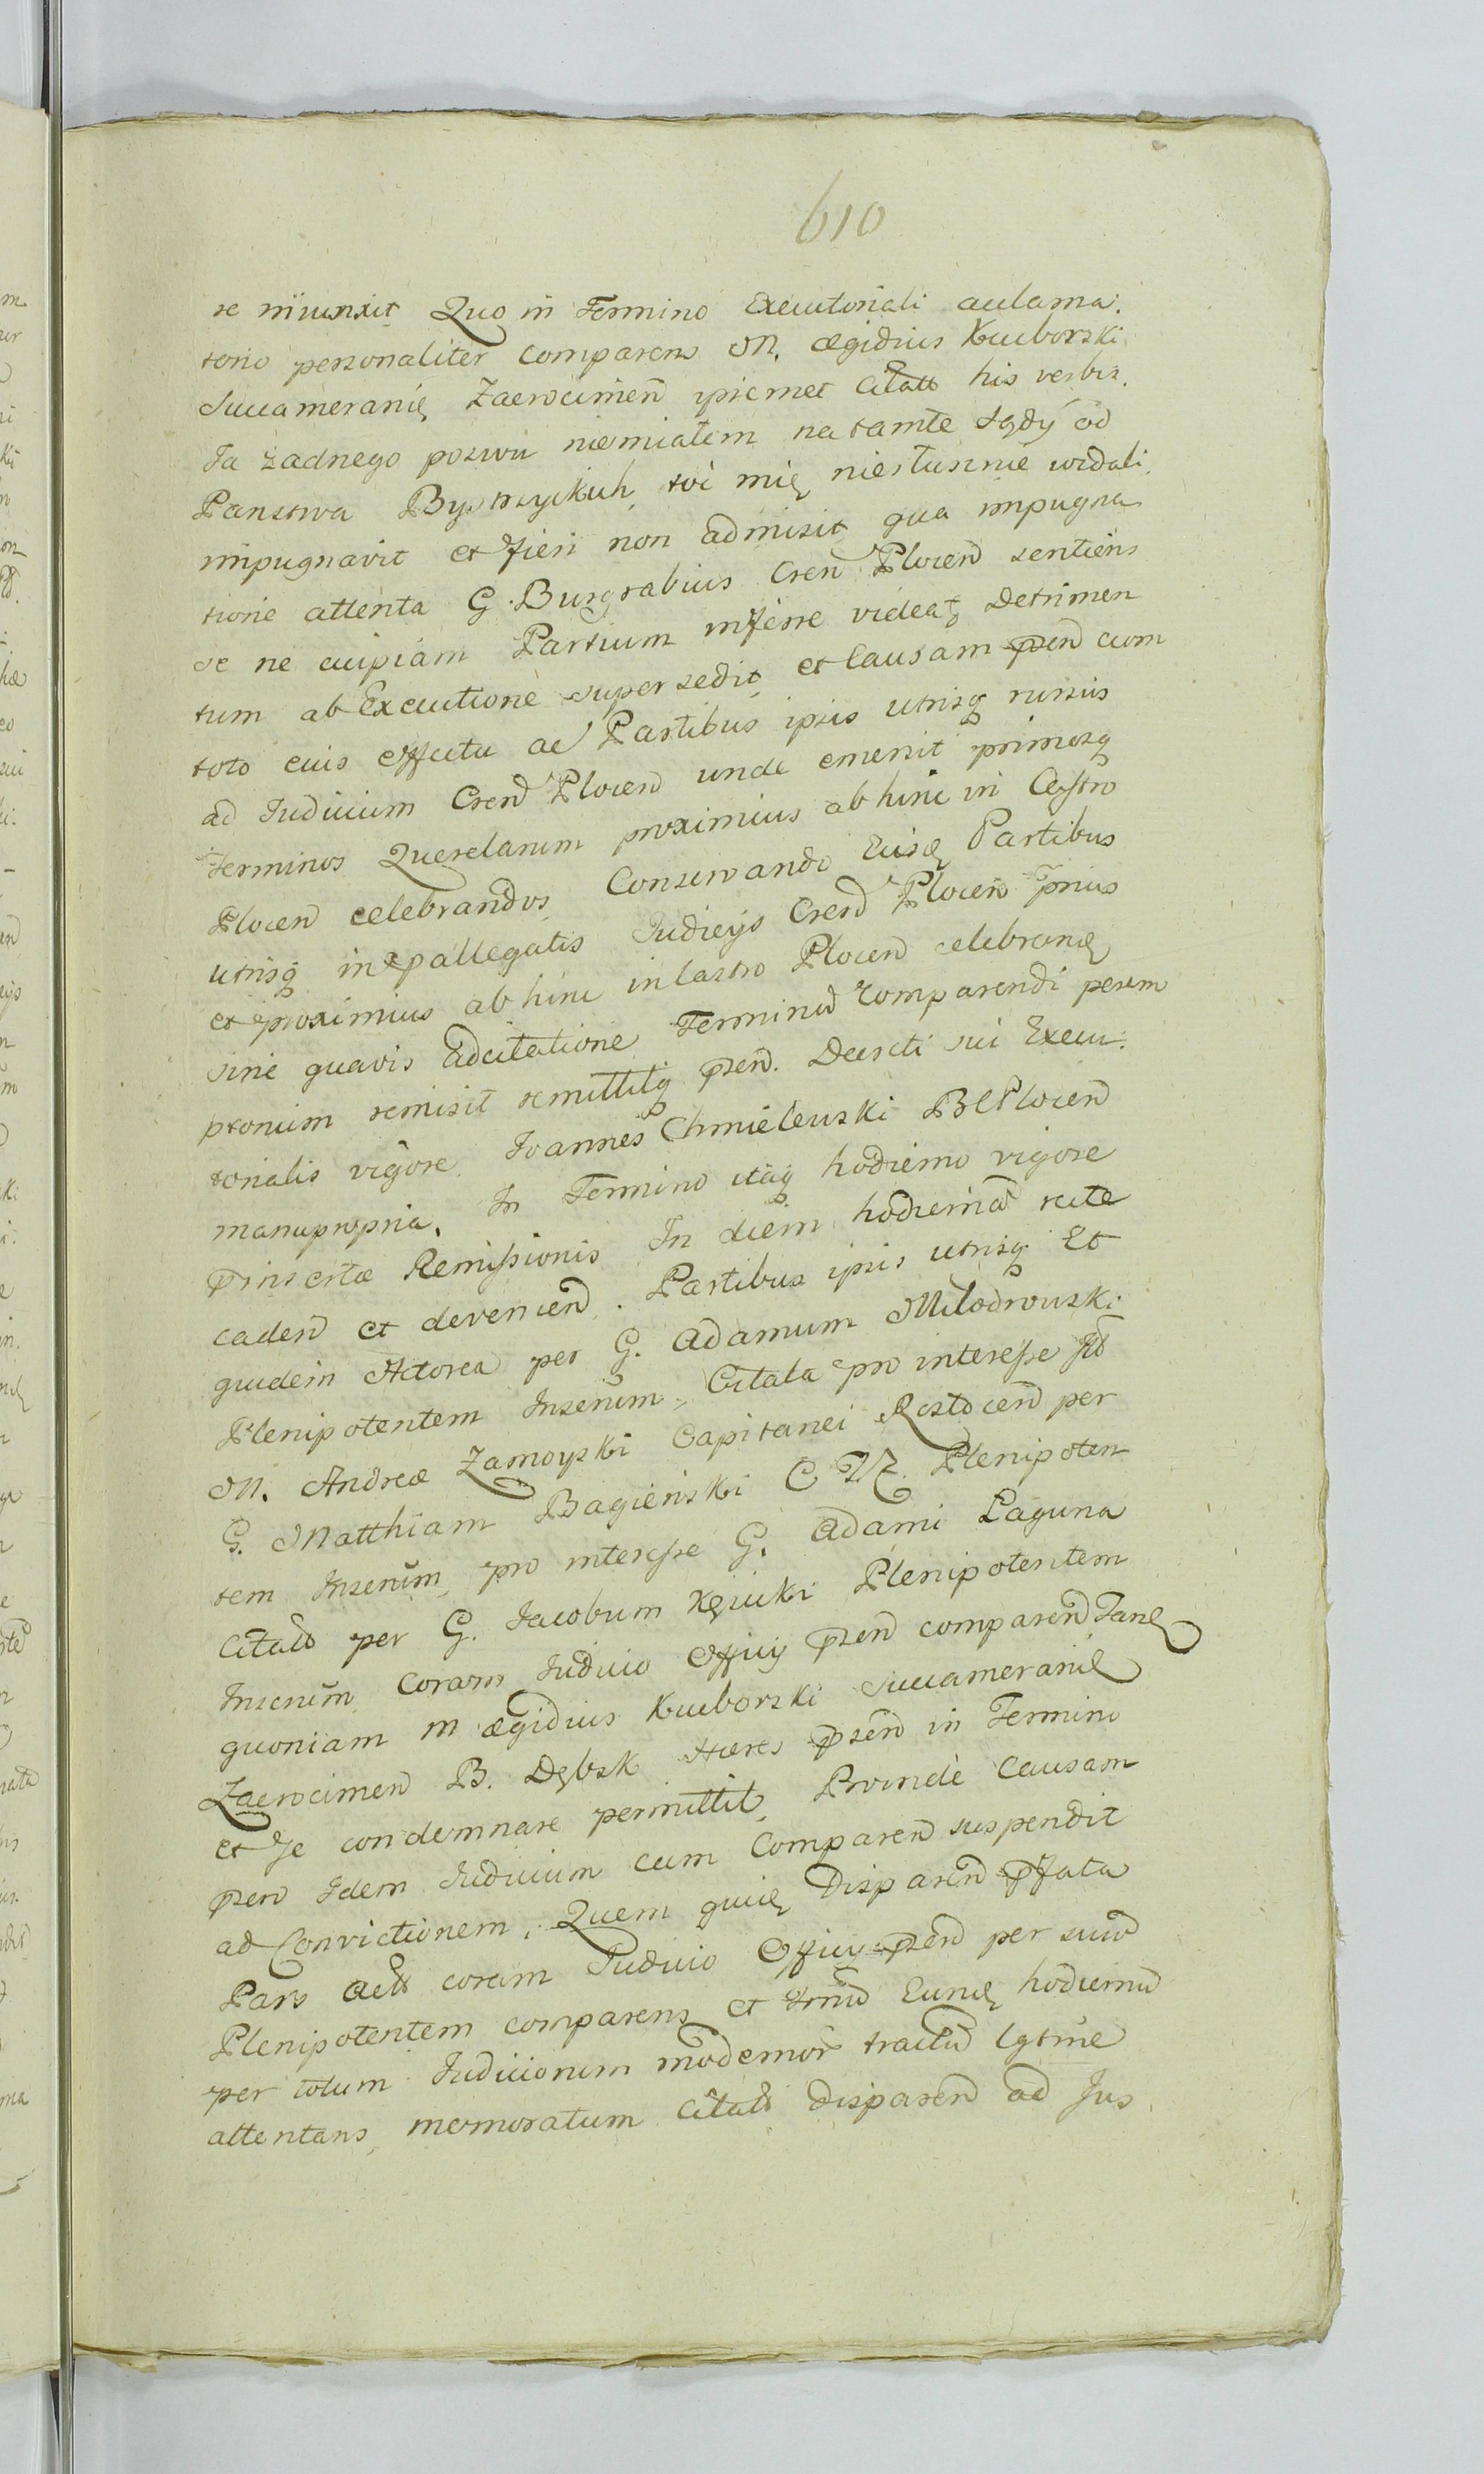 610
se niiunxit Quo in Termino Executoriali acclama:
torio personaliter comparens M. Ægidius Kuczborski
Succamerarię Zaerocimen̄ ipsemet Citatt his verbis.
Ja żadnego pozwu niemiałem na tamte sądÿ od
Panstwa Bystrzyckich, toć mię niesłusznie wzdali,
impugnavit et fieri non admisit, qua impugna
tione attenta G. Burgrabius Cren̄ Plocen̄ sentiens
se ne cuipiam Partium inferre videat, Detrimen
tum ab Executione supersedit, et Causam pn̄ cum
toto eius effectu ac Partibus ipsis utrisq̨ rursus
ad Iudicium Cren̄ Plocen̄ unde emersit primosq̨
Terminos Querelarum proximius abhinc in Castro
Plocen̄ celebrandos, Conservando Eisd̨ Partibus
utrisq̨ in p̄allegatis Iudicijs Cren̄ Plocen̄ prius
et proximius abhinc in Castro Plocen̄ celebrand̨
sine quavis Adcitatione Terminū comparendi perem
ptorium remisit remittitq̨ pn̄. Decreti sui Execu:
torialis vigore. Joannes Chmielewski BCPlocen̄
manupropria. In Termino itaq̨ hodierno vigore
p̄insertæ Remissionis In diem hodiernā recte
caden̄ et devenien̄. Partibus ipsis utrisq̨ Et
quidem Actorea per G. Adamum Miłodrowski
Plenipotentem Inserūm, Citata pro interesse
M. Andreæ Zamoyski Capitanei Rostocen̄ per
G. Matthiam Bagieński Plenipoten
tem Inserūm, pro interesse G. Adami Laguna
Citatt per G. Jacobum Kęsicki Plenipotentem
Inserūm, coram Iudicio Officij pn̄ comparen̄ Tand̨
quoniam M Ægidius Kuczborski Succamerarię
Zaerocimen̄ B. Dębsk Hæres pn̄ in Termino
et se condemnare permittit, Proinde Causam
pn̄ Idem Iudicium cum Comparen̄ suspendit
ad Convictionem. Quem quid̨ Disparen̄ p̄fata
Pars Actt coram Iudicio Officij pn̄ per suum
Plenipotentem comparens et Trm̄ Eund̨ hodiernū
per totum Iudiciorum modernor̄ tractū lgtme
attentans, memoratum Citatt Disparen̄ ad Jus